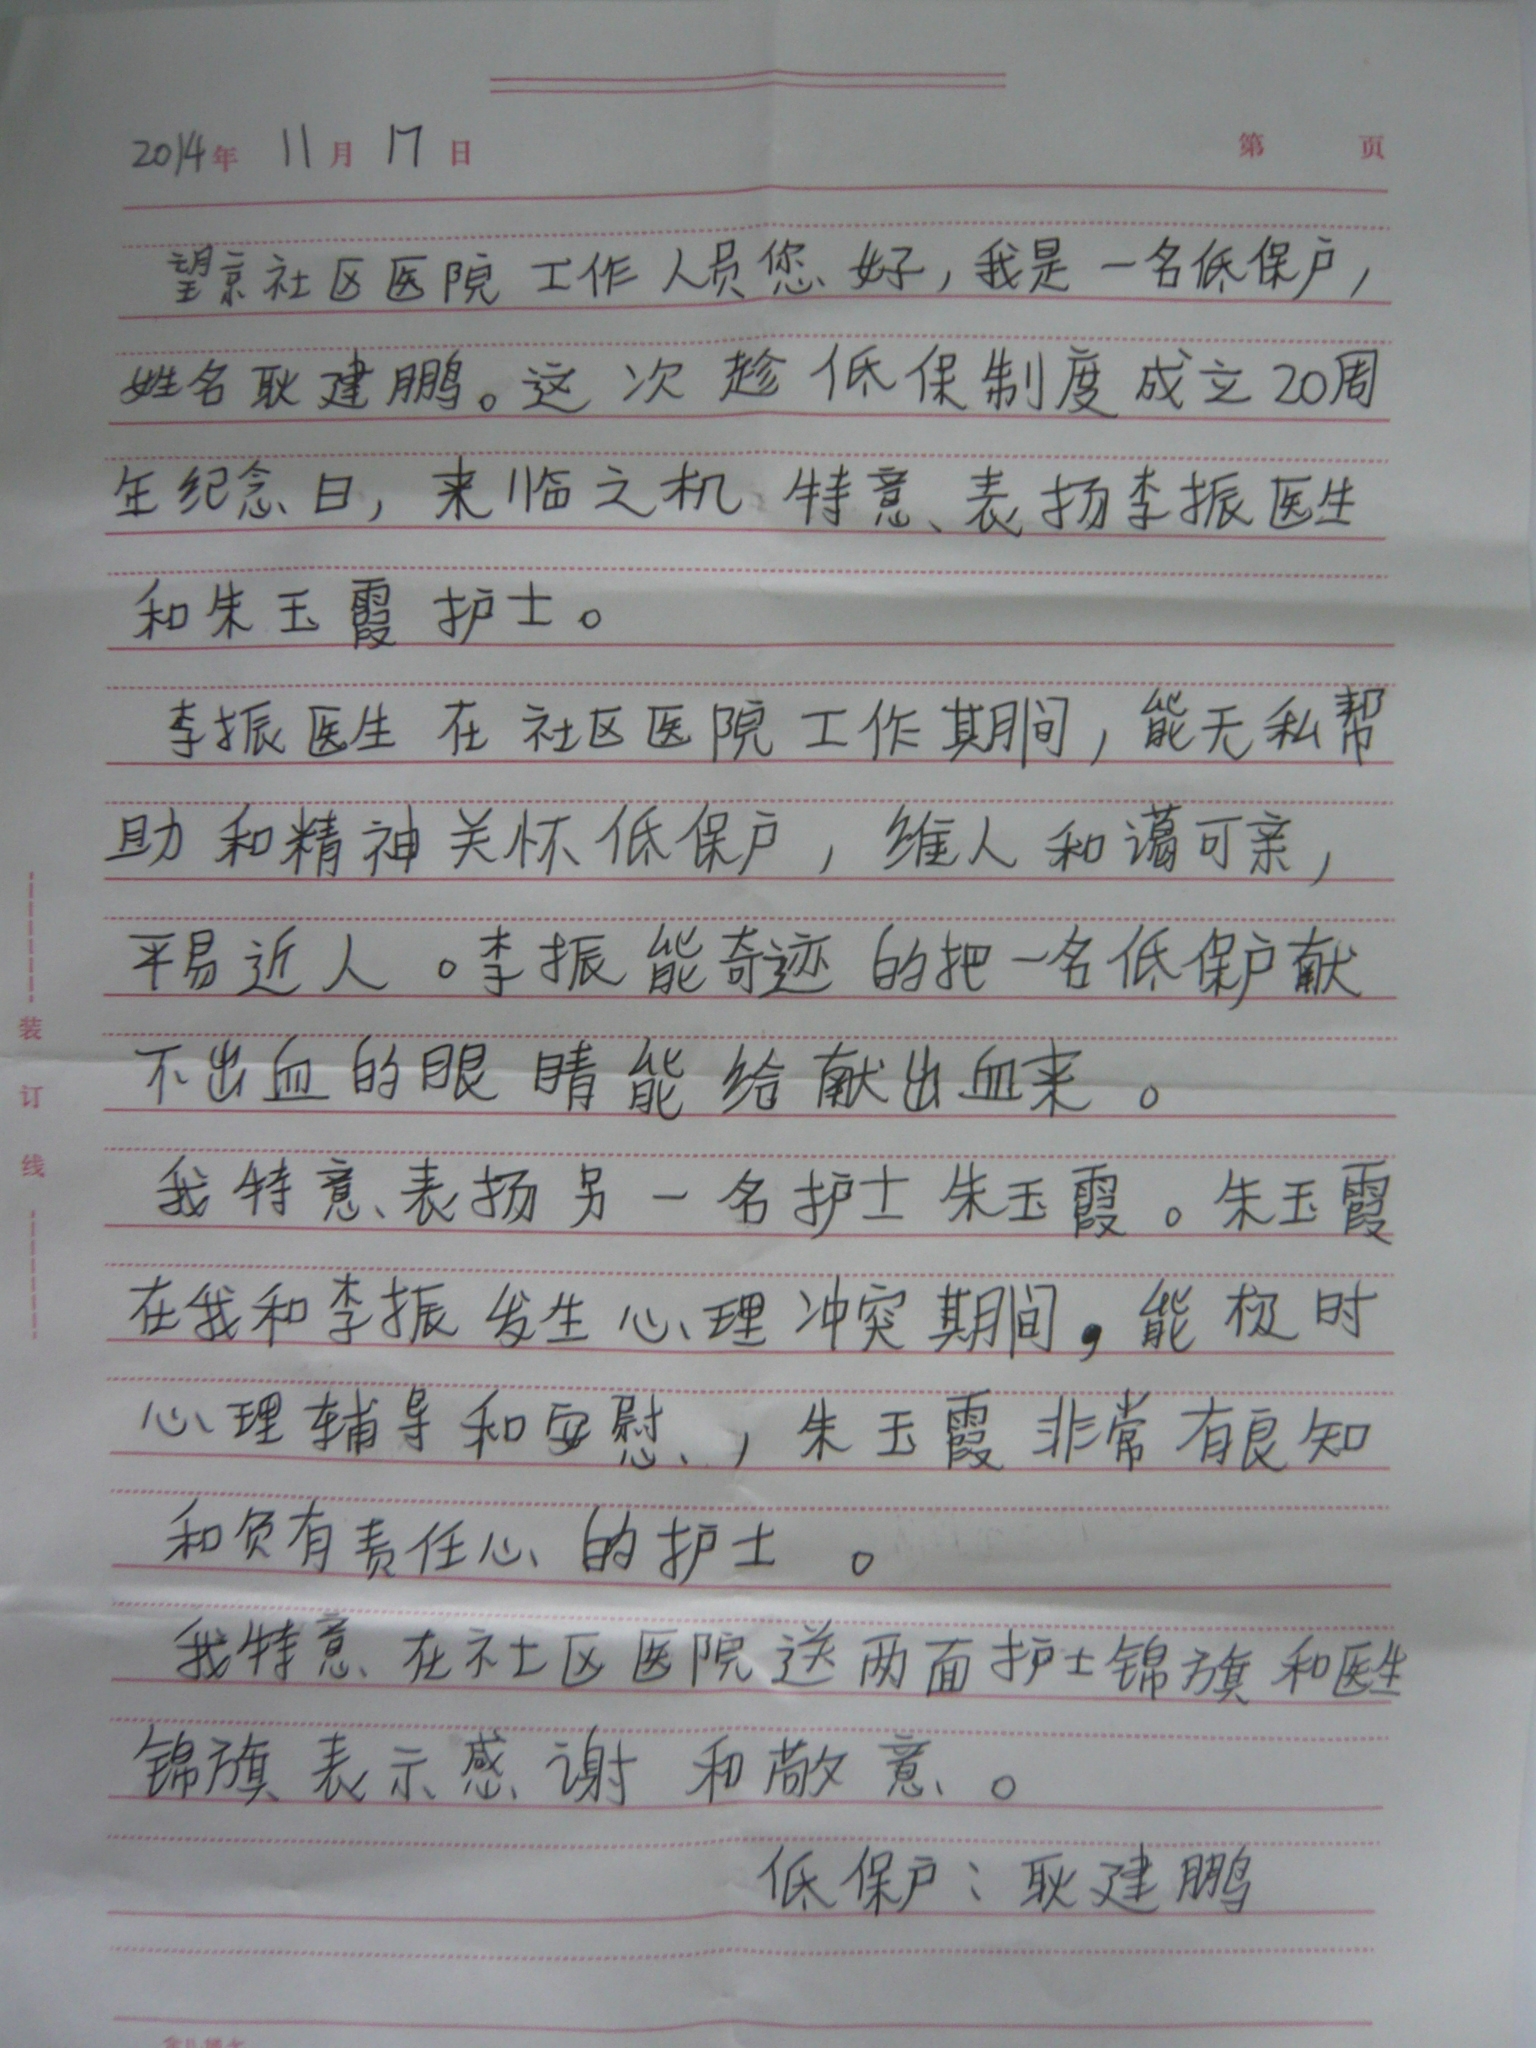 2014年 11月 17日 第 页
望京社区医院工作人员您好,我是一名低保户,
姓名耿建鹏。这次趁低保制度成立20周
年纪念日,来临之机 特意表扬李振医生
和朱玉霞护士。
李振医生在社区医院工作期间,能无私帮
助和精神关怀低保户,维人和蔼可亲,
平易近人。李振能奇迹的把一名低保户献
不出血的眼睛能给献出血来。
我特意表扬另一名护士朱玉霞。朱玉霞
在我和李振发生心理冲突期间,能极时
心理辅导和安慰,朱玉霞非常有良知
和负有责任心的护士。
我特意在社区医院送两面护士锦旗和医生
锦旗表示感谢和敬意。
低保户:耿建鹏
装订线